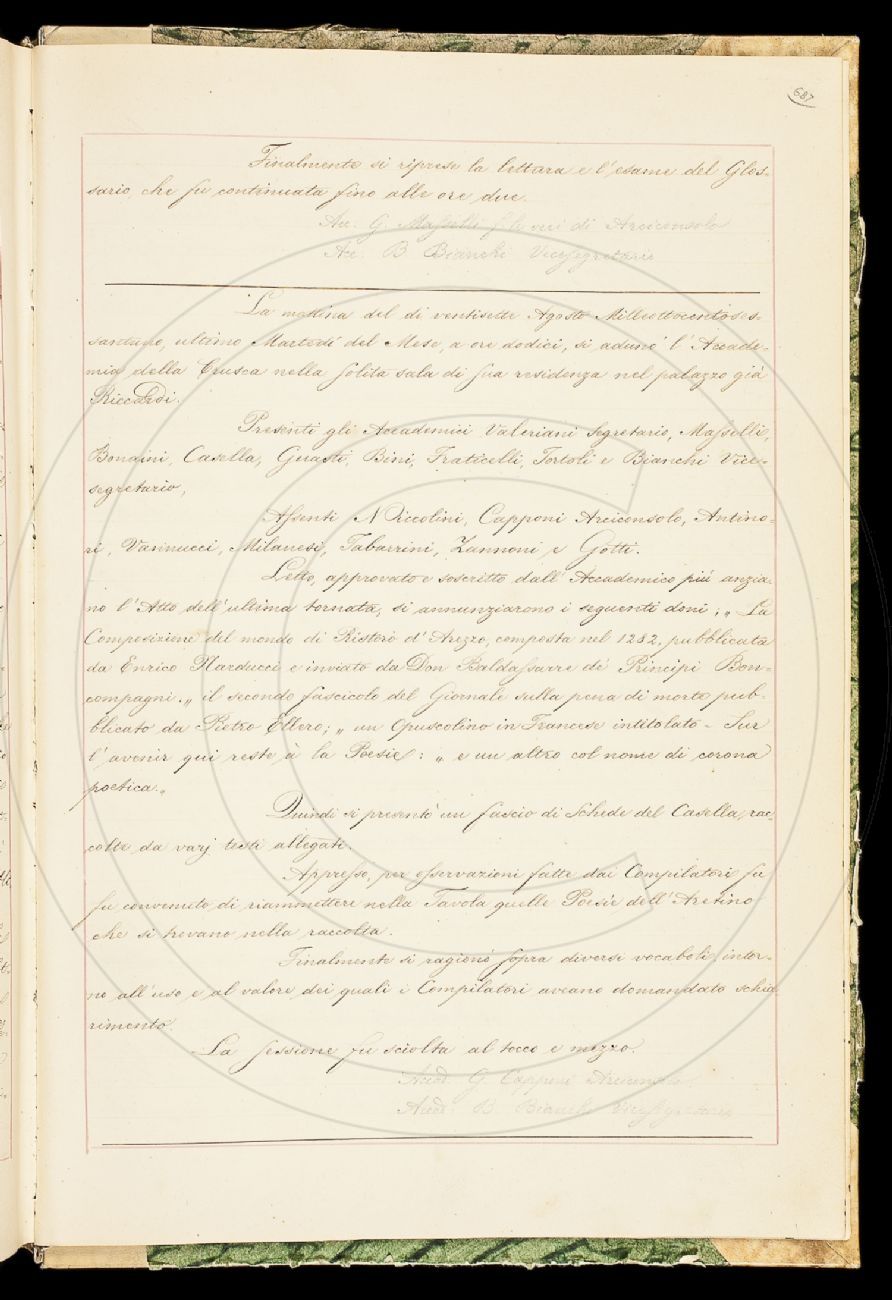 687
Finalmente si riprese la lettura e l'esame del Glos-
sario, che fu continuata fino alle ore due.
Acc. G. Masselli f le veci di Arciconsolo
Acc. B Bianchi Vicesegretario
La mattina del di ventisette Agosto Milleottocentoses-
santuno, ultimo Martedì del Mese, a ore dodici, si adunò l'Accade-
mia della Crusca nella solita sala di sua residenza nel palazzo già
Riccardi.
Presenti gli Accademici Valeriani Segretario, Masselli,
Bonaini, Casella, Guasti, Bini, Fraticelli, Tortoli e Bianchi Vice-
segretario,
Assenti Niccolini, Capponi Arciconsolo, Antino-
ri, Vannucci, Milanesi, Tabarrini, Zannoni e Gotti.
Letto, approvato e soscritto dall'Accademico più anzia-
no l'Atto dell'ultima tornata, si annunziarono i seguenti doni; „ La
Composizione del mondo di Ristoro d'Arezzo, composta nel 1282, pubblicata
da Enrico Narducci e inviato da Don Baldassarre de' Principi Bon-
compagni. „ il secondo fascicolo del Giornale sulla pena di morte pub-
blicato da Pietro Ellero; „ un Opuscolino in Francese intitolato - Sur
l'avenir qui reste à la Poesie: „ e un altro col nome di corona
poetica. „
Quindi si presentò un fascio di Schede del Casella, rac-
colte da varj testi allegati.
Appresso, per osservazioni fatte dai Compilatori fu
fu convenuto di riammettere nella Tavola quelle Poesie dell'Aretino
che si trovano nella raccolta.
Finalmente si ragionò sopra diversi vocaboli intor-
no all'uso e al valore dei quali i Compilatori aveano domandato schia-
rimento.
La sessione fu sciolta al tocco e mezzo.
Accd. G. Capponi Arciconsolo
Accd. B. Bianchi Vicesegretario